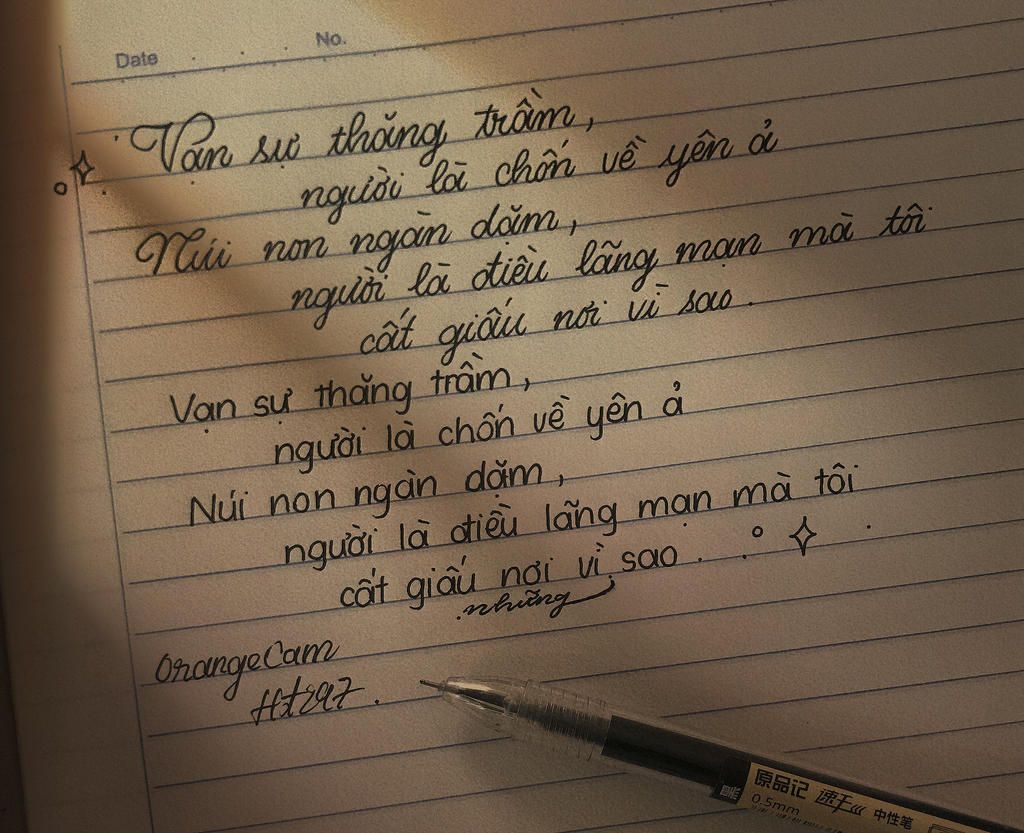 Date No.
Vạn sự thăng trầm,
người là chốn về yên ả
Núi non ngàn dặm,
người là điều lãng mạn mà tôi
cất giấu nơi vì sao.
Vạn sự thăng trầm,
người là chốn về yên ả
Núi non ngàn dặm,
người là điều lãng mạn mà tôi
cất giấu nơi vì sao.
những
OrangeCam
原品记 速干 中性笔
0.5mm